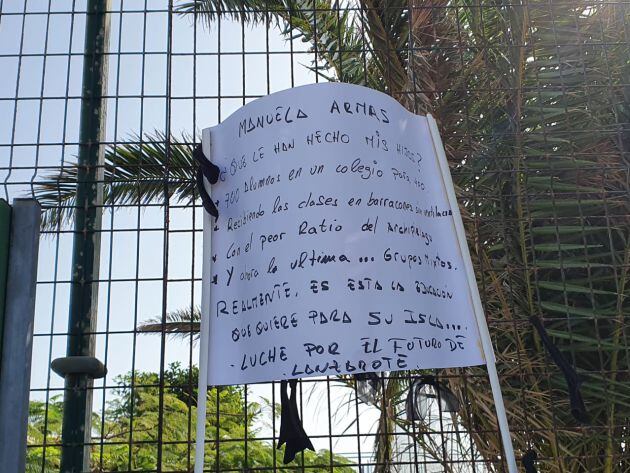 MANUELA ARMAS
¿QUE LE HAN HECHO MIS HIJOS?
* 700 Alumnos en un colegio para 400
* Recibiendo las clases en barracones sin ventilación
* Con el peor Ratio del Archipiélago
* Y ahora la ultima... Grupos Mixtos.
REALMENTE, ES ESTA LA EDUCACIÓN
QUE QUIERE PARA SU ISLA....
· LUCHE POR EL FUTURO DE
LANZAROTE.